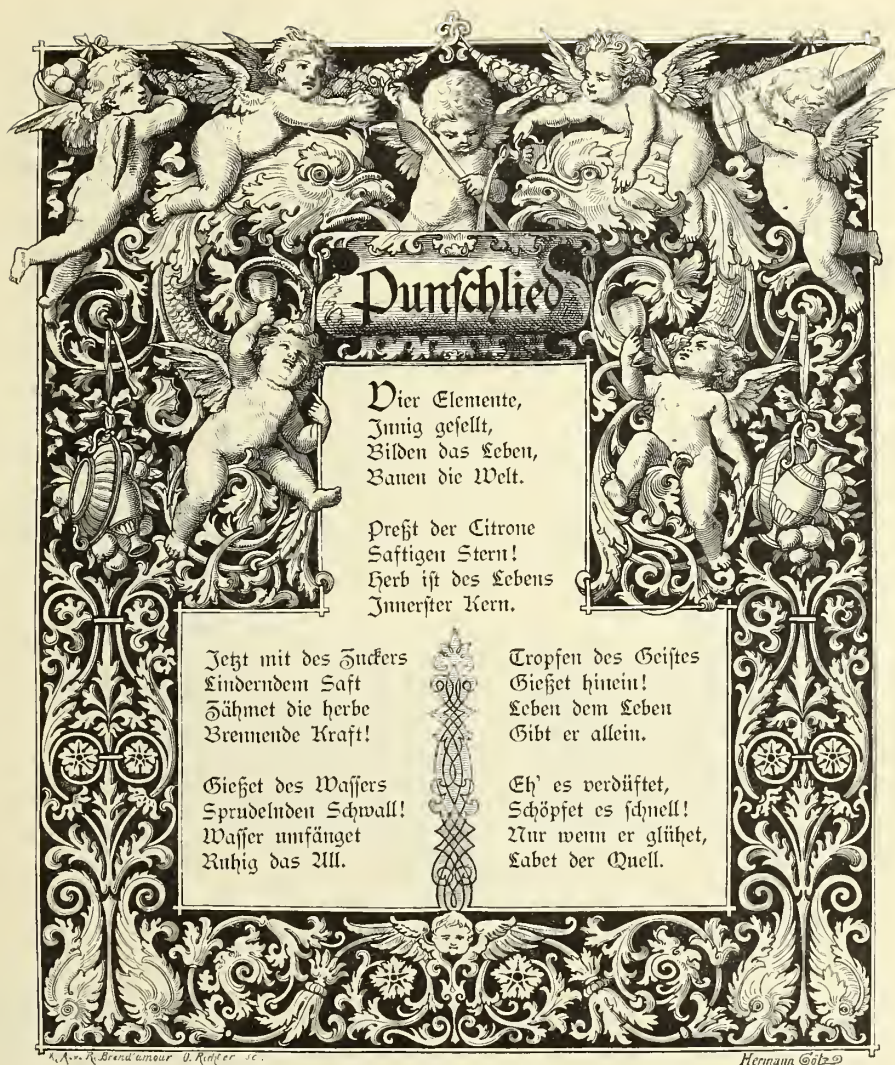 Punſchlied
Vier Elemente,
Innig geſellt,
Bilden das Leben,
Bauen die Welt.
Preßt der Citrone
Saftigen Stern!
Herb iſt des Lebens
Innerſter Kern.
Jetzt mit des Zuckers
Linderndem Saft
Zähmet die herbe
Brennende Kraft!
Gießet des Waſſers
Sprudelnden Schwall!
Waſſer umfänget
Ruhig das All.
Tropfen des Geiſtes
Gießet hinein!
Leben dem Leben
Gibt er allein.
Eh' es verdüftet,
Schöpfet es ſchnell!
Nur wenn er glühet,
Labet der Quell.
R. Brend'amour O. Richter sc.
Hermann Götz